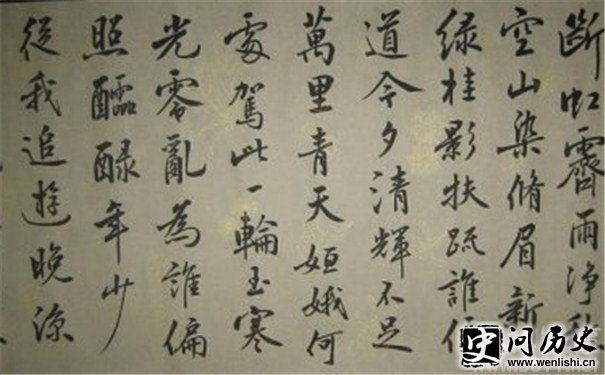 斷虹霽雨淨秋
空山染脩眉新
绿桂影扶疏誰便
道今夕清輝不足
萬里青天姮娥何
處駕此一輪玉寒
光零亂為誰偏
照醽醁年少
從我追遊晚涼
史 问历史
www.wenlishi.cn